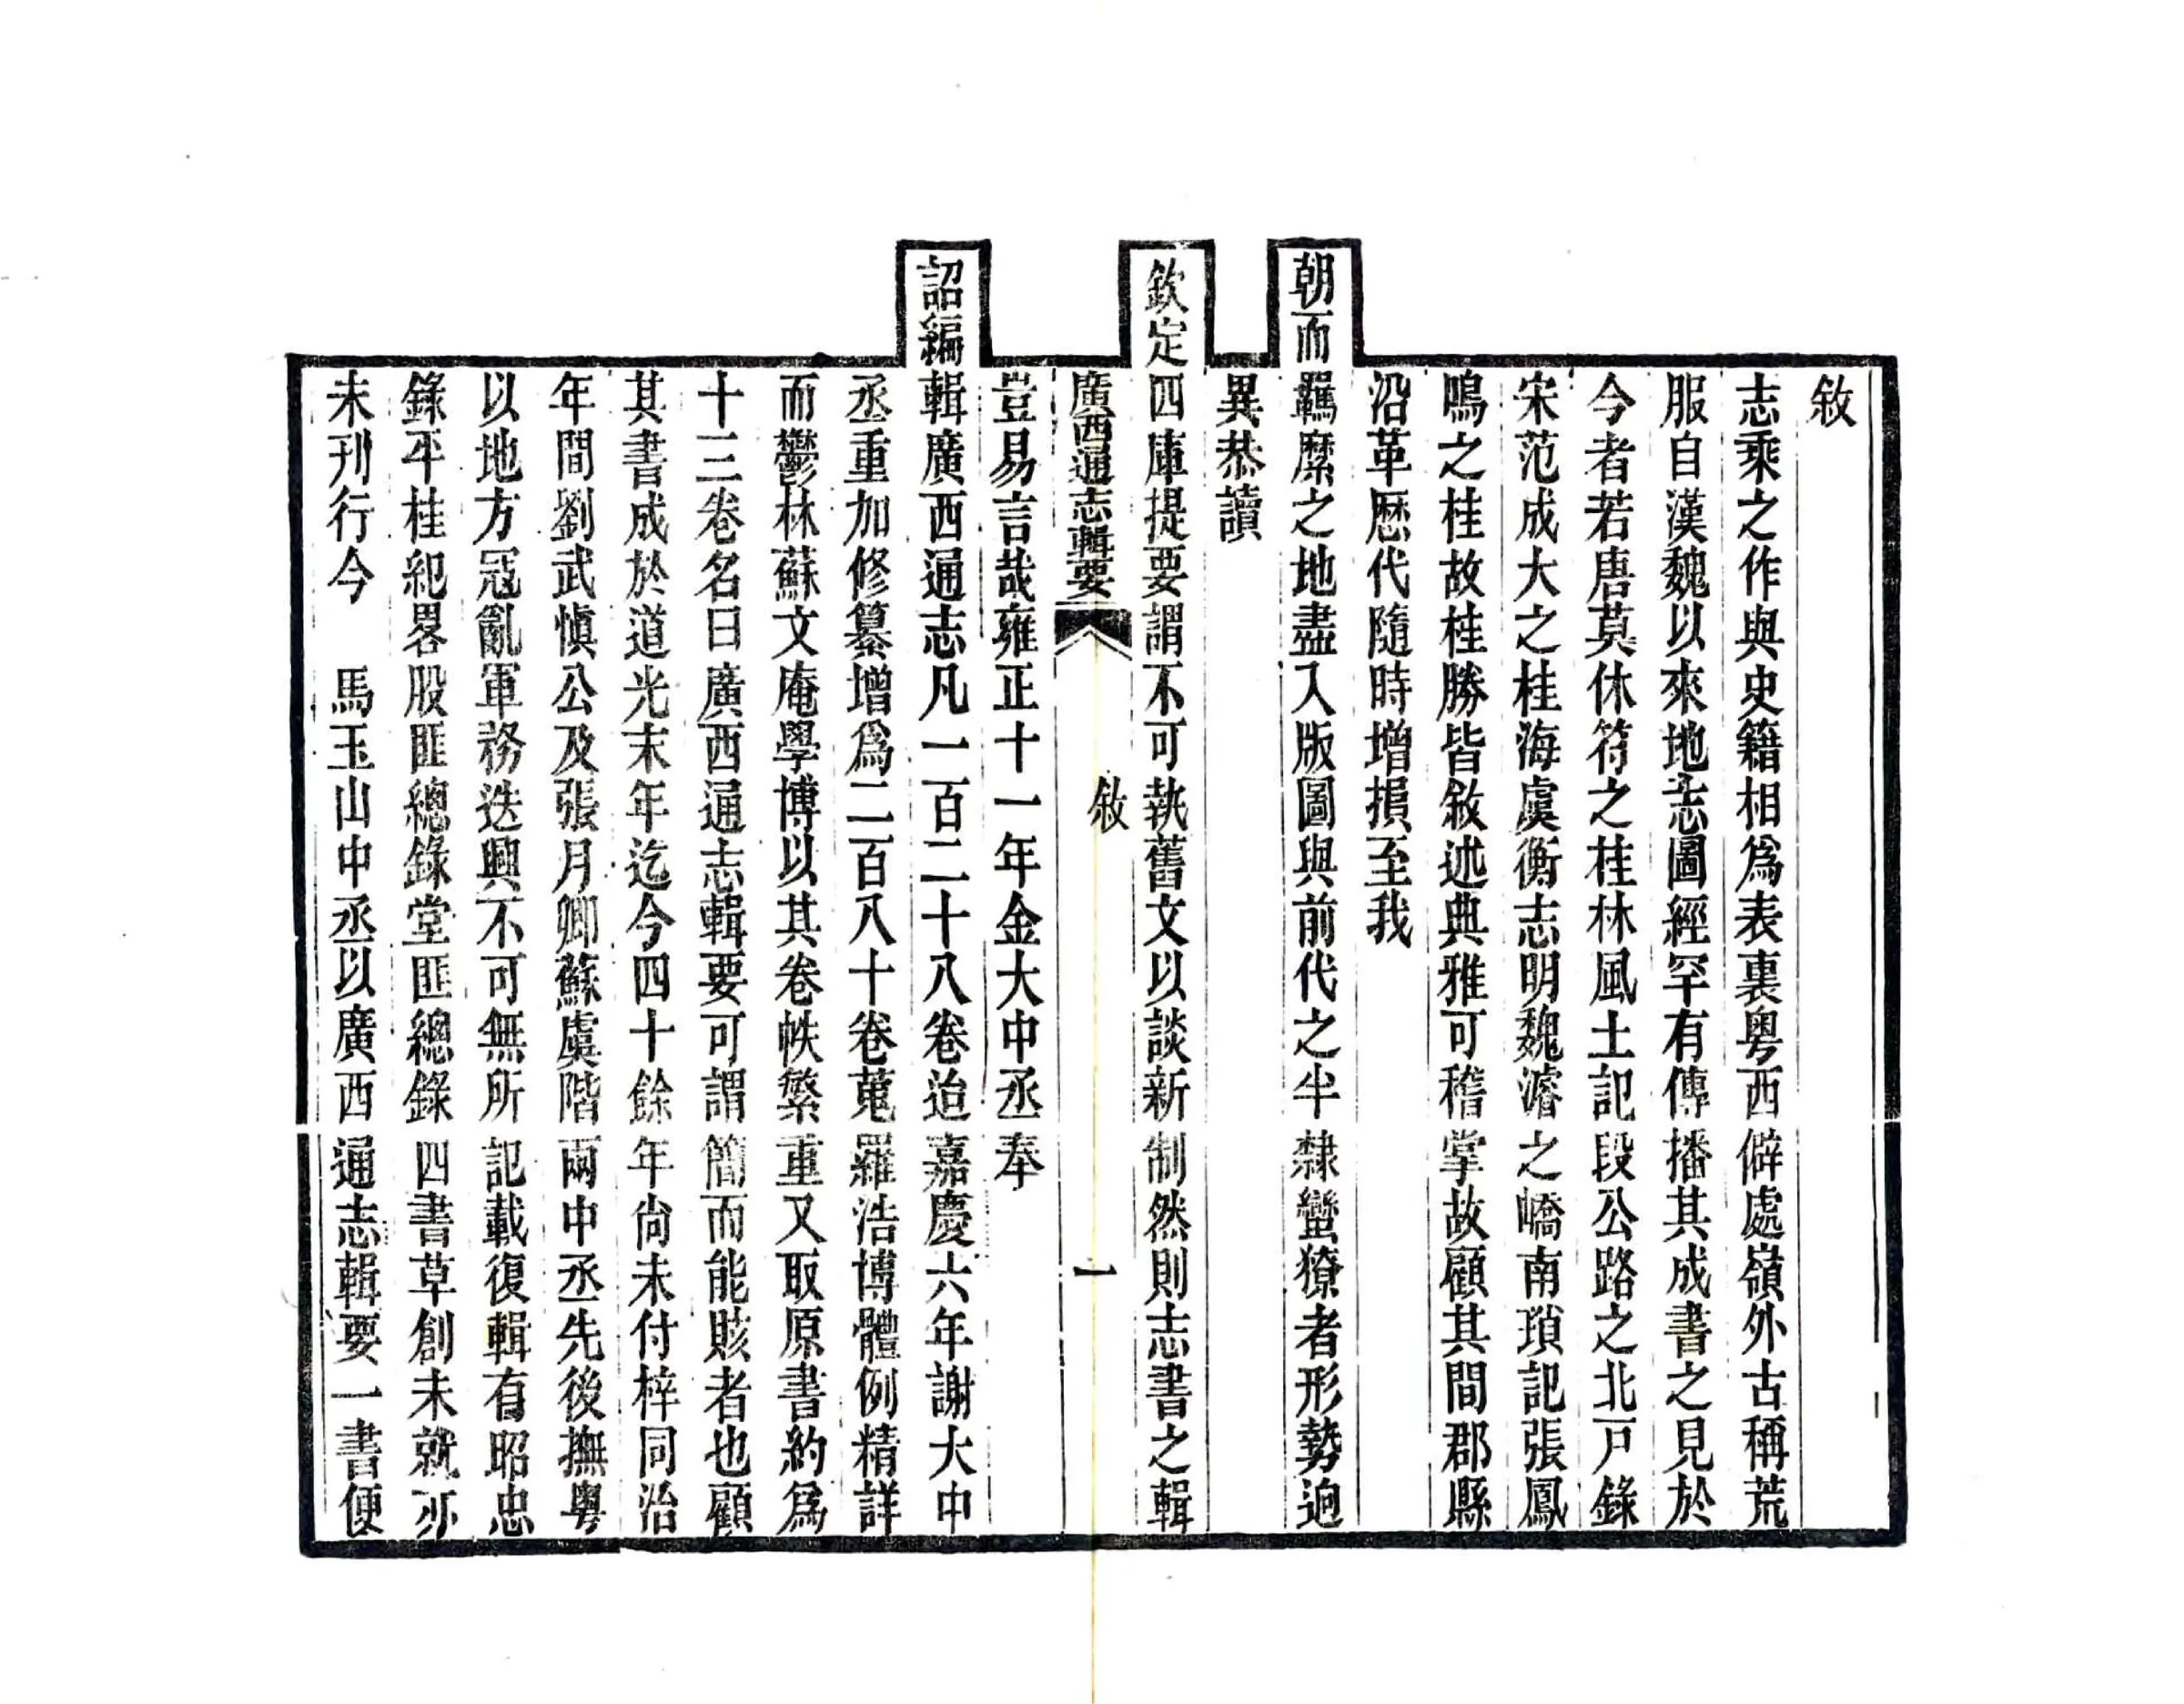 敘
志乘之作與史籍相為表裏粵西僻處嶺外古稱荒
服自漢魏以來地志圖經罕有傳播其成書之見於
今者若唐莫休符之桂林風土記段公路之北戸錄
宋范成大之桂海虞衡志明魏濬之嶠南瑣記張鳳
鳴之桂故桂勝皆敘述典雅可稽掌故顧其間郡縣
沿革歷代隨時增損至我
朝而羈縻之地盡入版圖與前代之半隸蠻獠者形勢迥
異恭讀
欽定四庫提要謂不可執舊文以談新制然則志書之輯
廣西通志輯要 敘 一
豈易言哉雍正十一年金大中丞奉
詔編輯廣西通志凡一百二十八卷迨嘉慶六年謝大中
丞重加修纂增爲二百八十卷蒐羅浩博體例精詳
而鬱林蘇文庵學博以其卷帙繁重又取原書約爲
十三卷名曰廣西通志輯要可謂簡而能賅者也顧
其書成於道光末年迄今四十餘年尙未付梓同治
年間劉武愼公及張月卿蘇虞階兩中丞先後撫粵
以地方冦亂軍務迭興不可無所記載復輯有昭忠
錄平桂紀畧股匪總錄堂匪總錄四書草創未就亦
未刊行今 馬玉山中丞以廣西通志輯要一書便